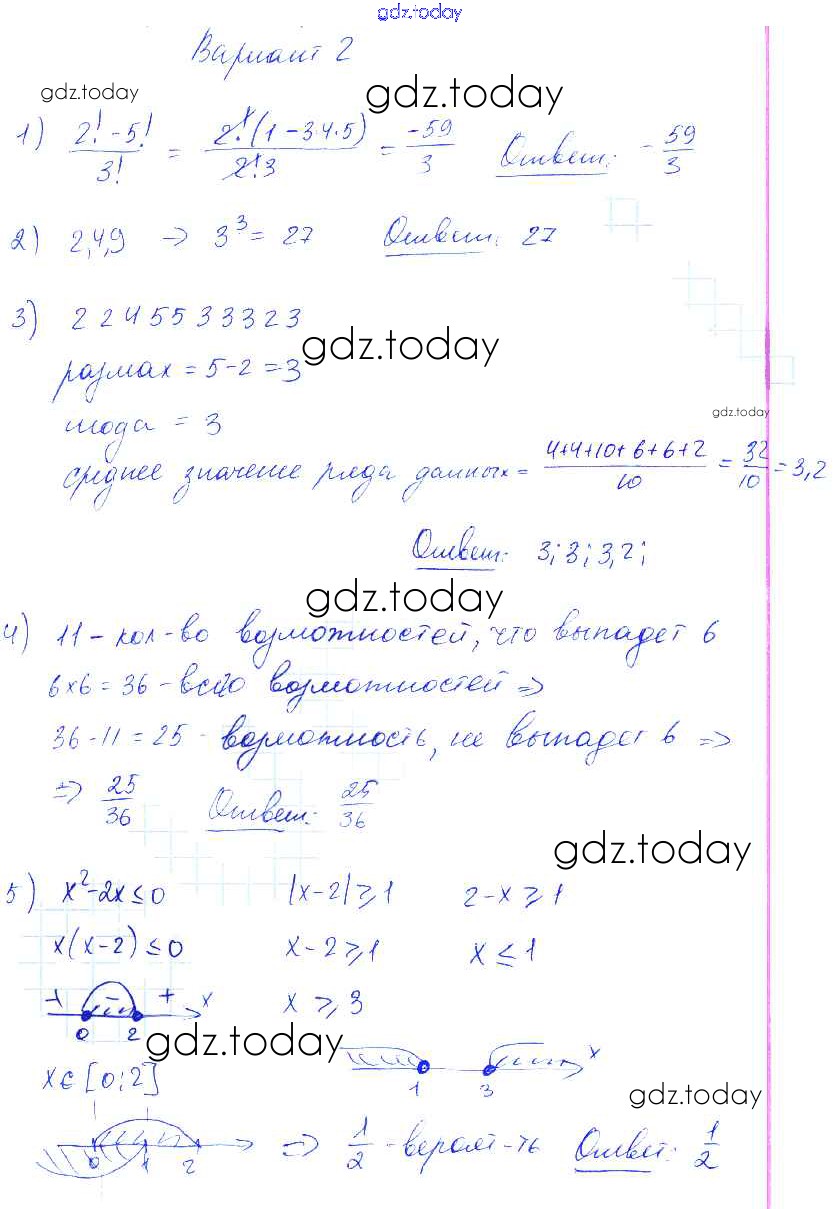 gdz.today
Вариант 2
gdz.today gdz.today
1) (2! - 5!)/3! = (2!(1 - 3·4·5))/(2!·3) = -59/3 Ответ: -59/3
2) 2,4,9 → 3³ = 27 Ответ: 27
3) 2 2 4 5 5 3 3 3 2 3
gdz.today
размах = 5-2 = 3
gdz.today
мода = 3
среднее значение ряда данных = (4+4+10+6+6+2)/10 = 32/10 = 3,2
Ответ: 3; 3; 3,2;
gdz.today
4) 11 - кол-во возможностей, что выпадет 6
6×6 = 36 - всего возможностей ⇒
36 - 11 = 25 - возможность, не выпадет 6 ⇒
⇒ 25/36 Ответ: 25/36
gdz.today
5) x² - 2x ≤ 0 |x-2| ≥ 1 2-x ≥ 1
x(x-2) ≤ 0 x-2 ≥ 1 x ≤ 1
+ - + x x ≥ 3
0 2 gdz.today
x
x ∈ [0; 2] 1 3 gdz.today
0 1 2 ⇒ 1/2 - вероят-ть Ответ: 1/2